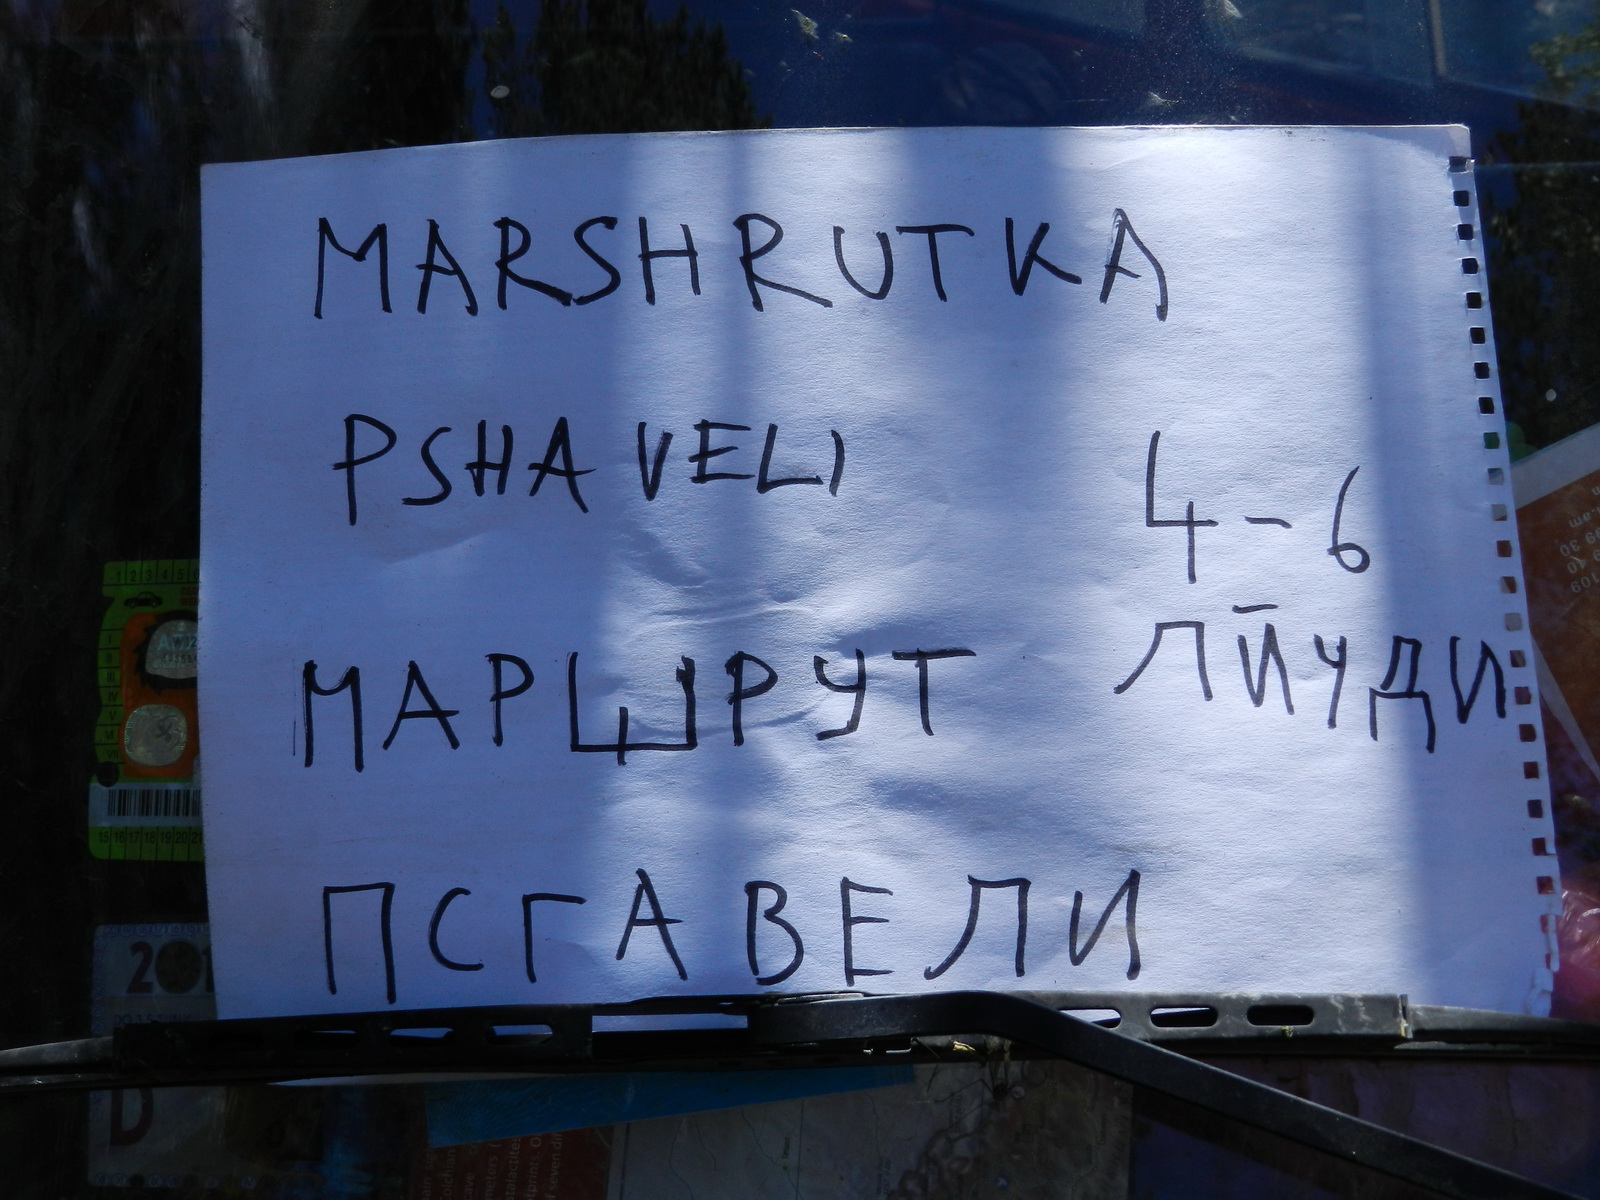 MARSHRUTKA
PSHAVELI
4-6
ЛЙУДИ
МАРШРУТ
ПСГАВЕЛИ